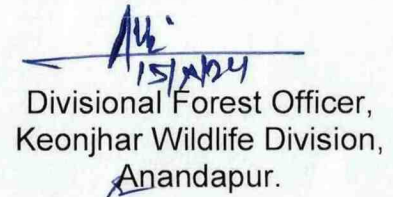 Divisional Forest Officer,
Keonjhar Wildlife Division,
Anandapur.